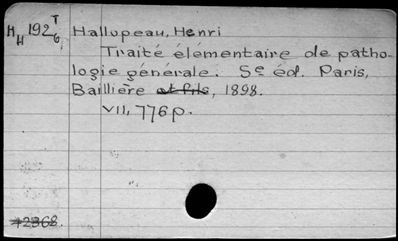 HH 192 T6 Hallopeau, Henri
Traité élémentaire de patho-
logie générale. 5e éd. Paris,
Baillière et fils, 1898.
VII, 776 p.
42368.